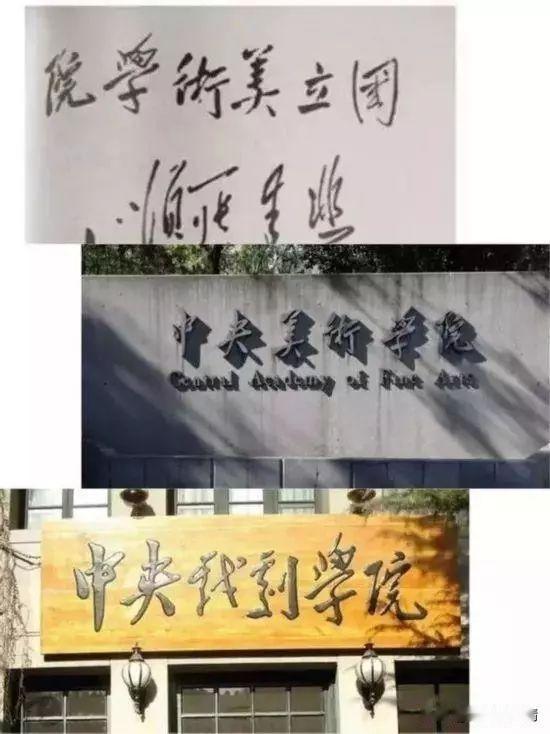 国立美術學院
中央美術学院
Central Academy of Fine Arts
中央戏剧學院